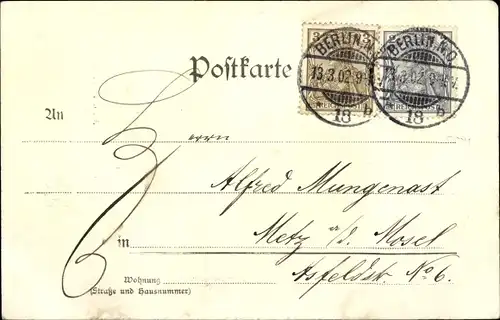 3 3 3
BERLIN N.O. BERLIN N.O.
13.3.02.9-V. 13.3.02.9-V.
18 b 18 b
Postkarte
An
Herrn
Alfred Mungenast
in Metz a/d. Mosel
Asfeldstr. No 6.
Wohnung
(Straße und Hausnummer)